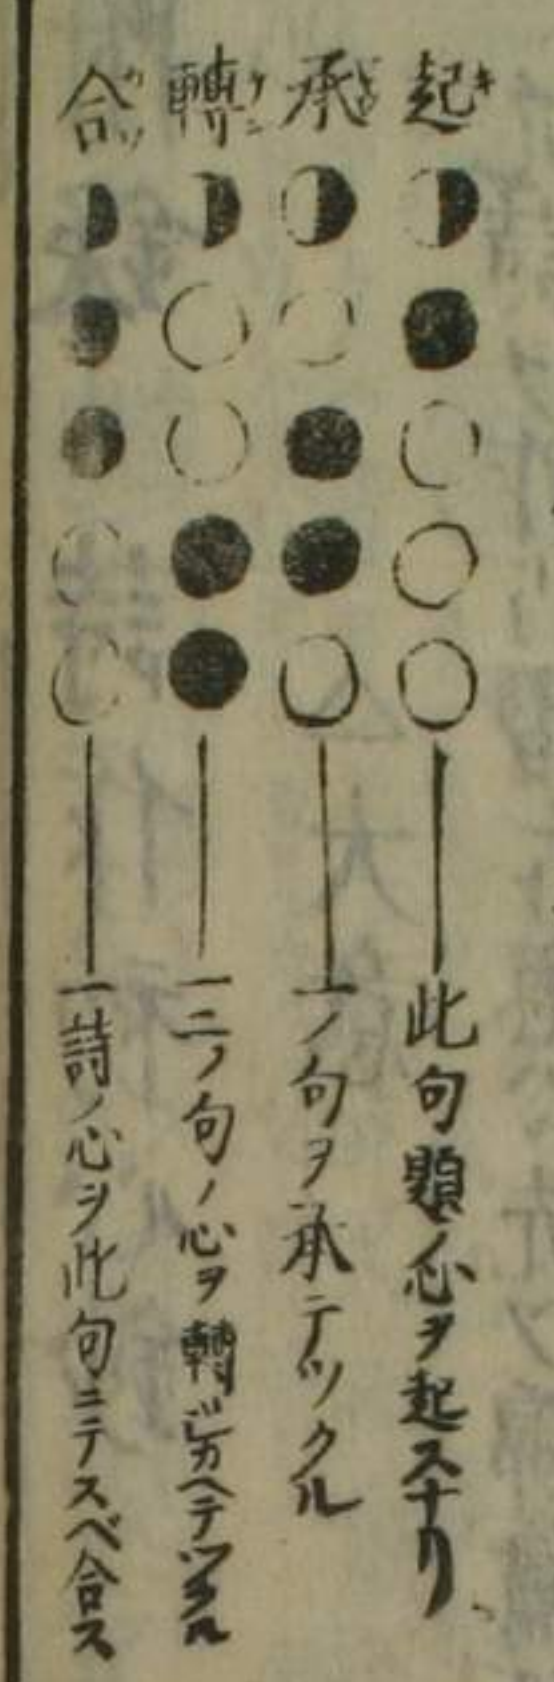 起キ ◑●○○○ 此句題ノ心ヲ起スナリ
承 ◑○●●○ 一ノ句ヲ承テツクル
轉テン ◗○○●● 一二ノ句ノ心ヲ轉ジカヘテツクル
合 ◗●●○○ 一詩ノ心ヲ此句ニテスベ合ス